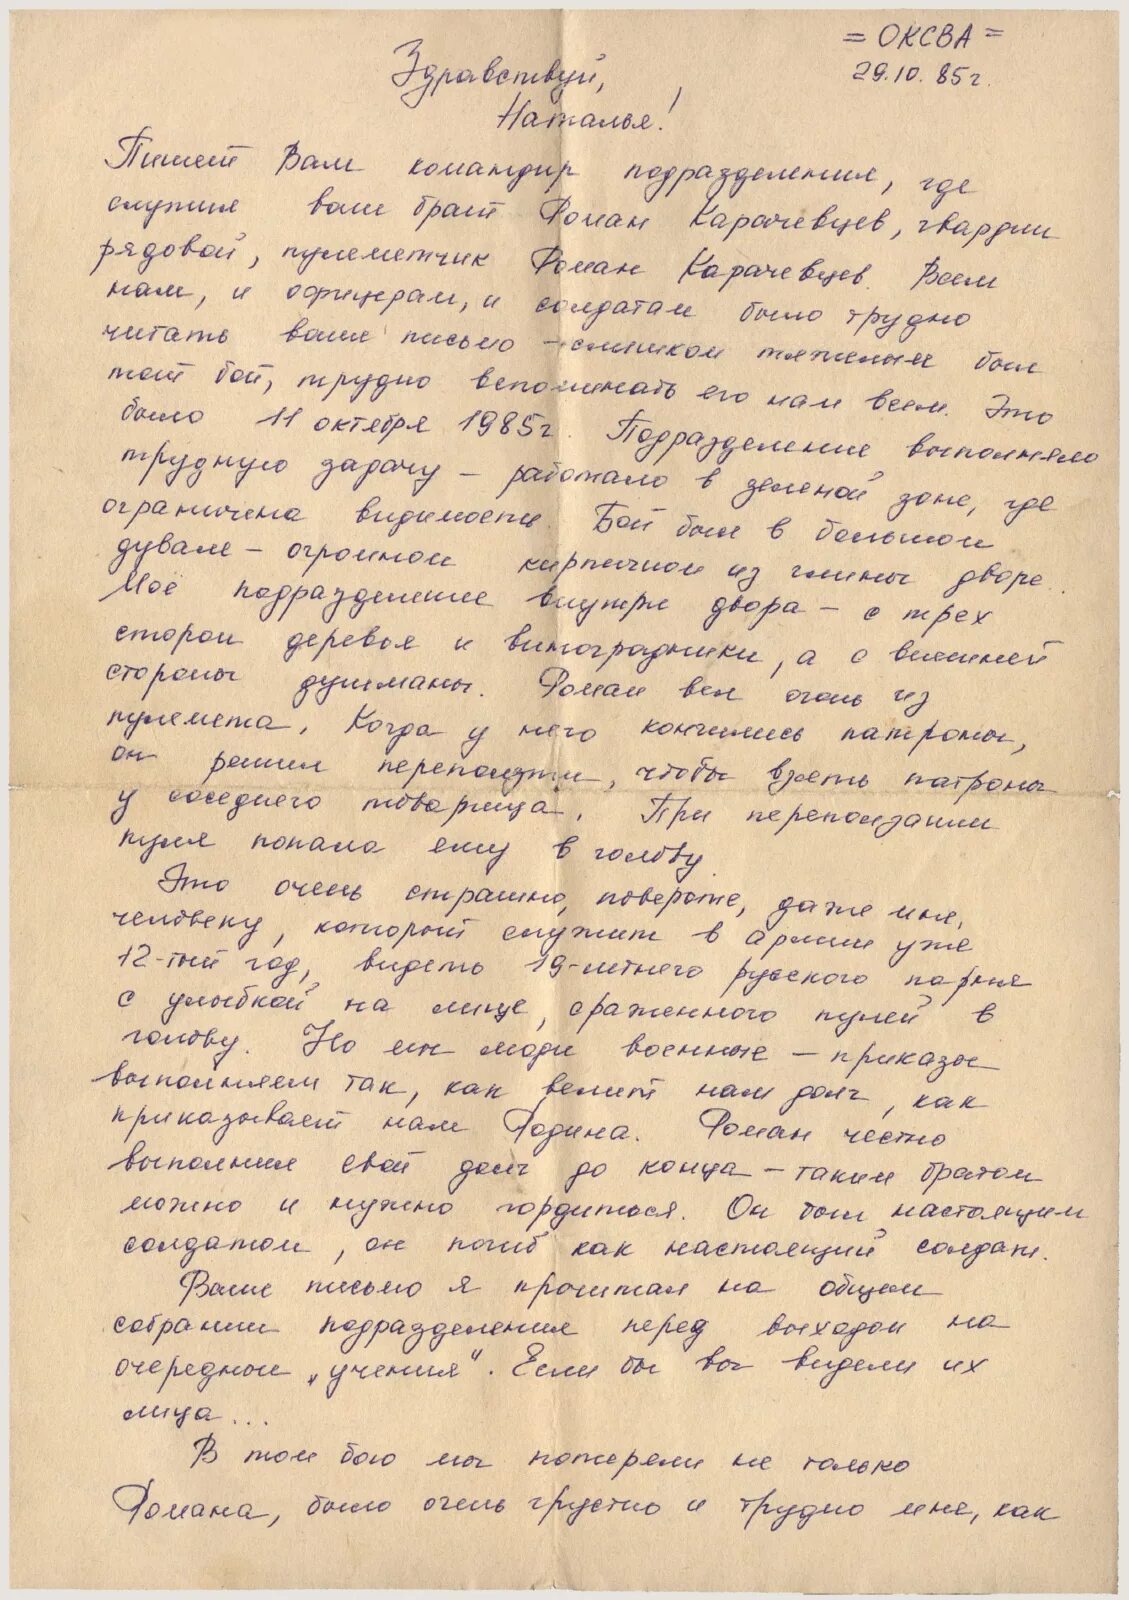 = ОКСВА =
29.10.85г.
Здравствуй,
Наталья!
Пишет Вам командир подразделения, где
служил ваш брат Роман Карачевцев, гвардии
рядовой, пулеметчик Роман Карачевцев. Всем
нам, и офицерам, и солдатам было трудно
читать ваше письмо – слишком тяжелым был
тот бой, трудно вспоминать его нам всем. Это
было 11 октября 1985г. Подразделение выполняло
трудную задачу – работало в зеленой зоне, где
ограничена видимость. Бой был в большом
дувале – огромном кирпичном из глины дворе.
Моё подразделение внутри двора – с трех
сторон деревья и виноградники, а с внешней
стороны душманы. Роман вел огонь из
пулемета. Когда у него кончились патроны,
он решил переползти, чтобы взять патроны
у соседнего товарища. При переползании
пуля попала ему в голову.
Это очень страшно, поверьте, даже мне,
человеку, который служит в армии уже
12-тый год, видеть 19-летнего русского парня
с улыбкой на лице, сраженного пулей в
голову. Но мы люди военные – приказы
выполняем так, как велит нам долг, как
приказывает нам Родина. Роман честно
выполнил свой долг до конца – таким братом
можно и нужно гордиться. Он был настоящим
солдатом, он погиб как настоящий солдат.
Ваше письмо я прочитал на общем
собрании подразделения перед выходом на
очередные „учения“. Если бы вы видели их
лица...
В том бою мы потеряли не только
Романа, было очень грустно и трудно мне, как